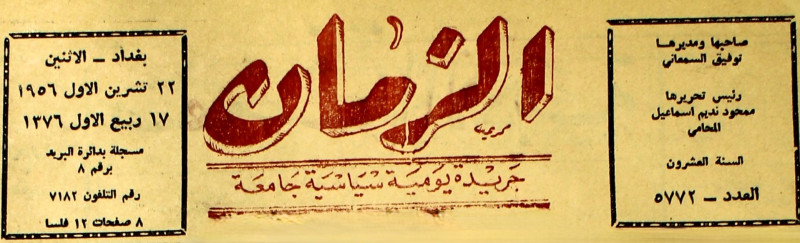 صاحبها ومديرها
توفيق السمعاني
رئيس تحريرها
محمود نديم اسماعيل
المحامي
السنة العشرون
العدد – ٥٧٧٢
الزمان
جريدة يومية سياسية جامعة
بغداد – الاثنين
٢٢ تشرين الاول ١٩٥٦
١٧ ربيع الاول ١٣٧٦
مسجلة بدائرة البريد
برقم ٨
رقم التلفون ٧١٨٢
٨ صفحات ١٢ فلسا